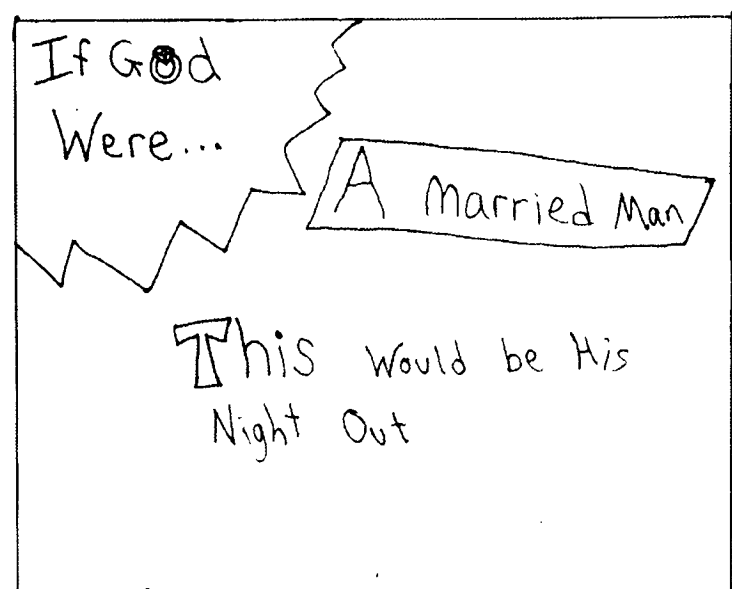 If God
Were...
A Married Man
This Would be His
Night Out